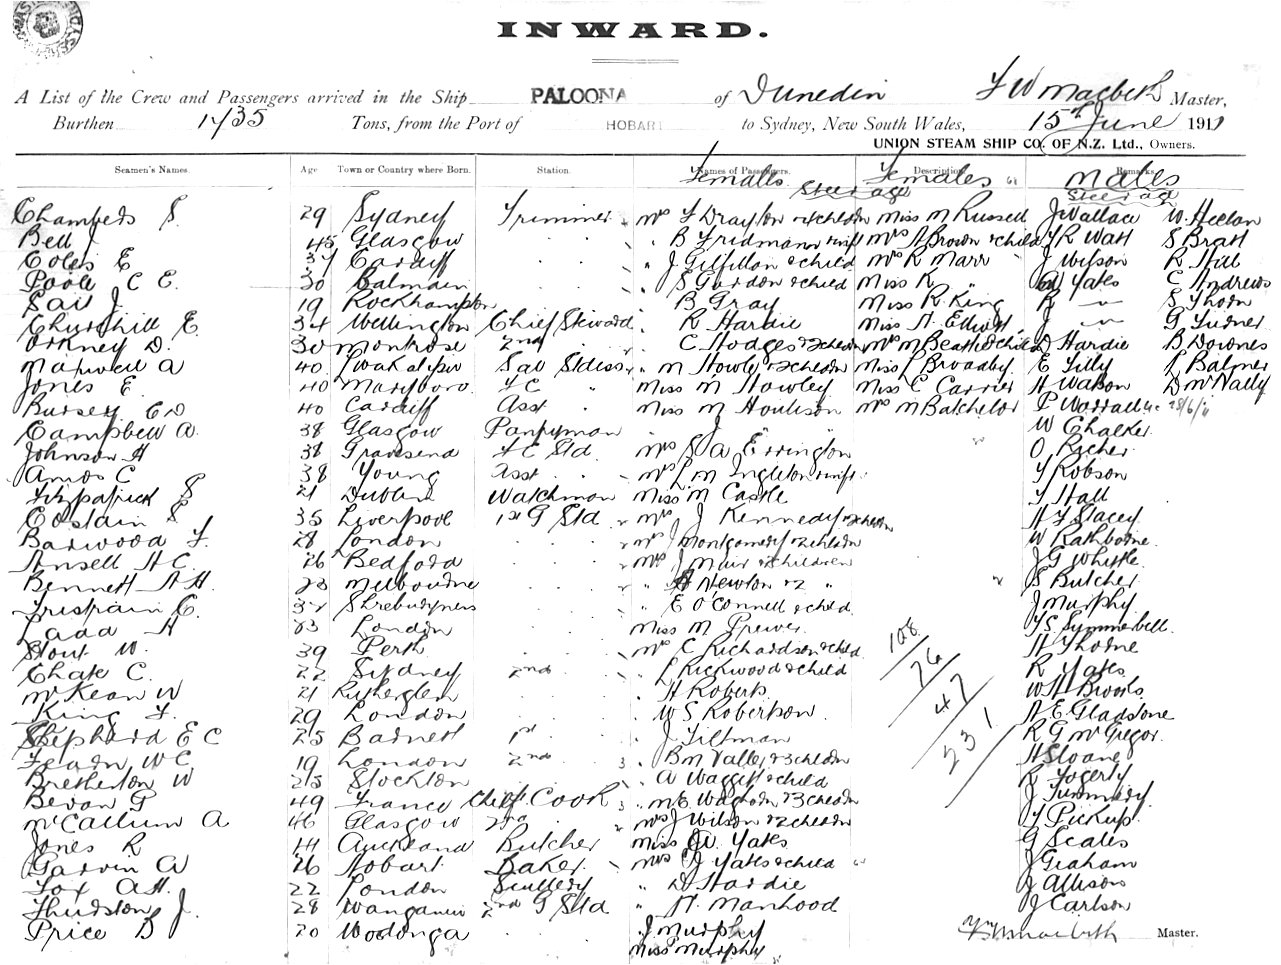 INWARD.
A List of the Crew and Passengers arrived in the Ship PALOONA of Dunedin F W Macbeth Master,
Burthen 1735 Tons, from the Port of HOBART to Sydney, New South Wales, 15th June 1911
UNION STEAM SHIP CO. OF N.Z. Ltd., Owners.
Seamen's Names. Age Town or Country where Born. Station. Names of Passengers. Descriptions Remarks
Females Steerage Females Males Steerage
Chambers S 29 Sydney Trimmer Mrs F Drayton & 2 children Miss M Russell J Wallace W. Heelan
Bell J 45 Glasgow " B Fridman & infant Mrs A Brown & child F R Watt S Bratt
Coles E 37 Cardiff " J Gilfillan & child Mrs R Marr J Wilson R Hill
Poole C E. 30 Balmain " S Gordon & child Miss K " Yates C Andrews
J 19 Rockhampton B Gray Miss R. King R " S Thorn
Churchill E 34 Wellington Chief Steward " R Hardie J " G Turner
Orkney D. 30 Montrose 2nd " " C. Hodges & 2 children Mrs M Beath & child D Hardie B Downes
Maxwell A 40 Sal Stdess " M Howley & 2 children Miss L Broadby E Tilly L Balmer
Jones E 40 Maryboro. F C " Miss M Howley Miss C Carrier H Watson D McNally
Bursey E D 40 Cardiff Asst " Miss M Houlison Mrs M Batchelor P Worrall 28/6/11
Campbell A. 38 Glasgow Pantryman " J " W Chalker
Johnson H 38 Gravesend F C Std. Mrs S A Errington O. Richer
Amos C 38 Young Asst " Mrs L M Ingleton & infant F Robson
Fitzpatrick S 21 Dublin Watchman Miss M Castle F Hall
Costain S 35 Liverpool 1st G Std Mrs J Kennedy & 2 children H F Stacey
Barwood F. 28 London Mrs J Montgomery & 2 children W Rathborne
Ansell H C. 26 Bedford Mrs J Muir & children J G Whittle
Bennett A H. 23 Melbourne " A Newton & 2 " S Butcher
C. 37 " E O'Connell & child J Murphy
Ladd H 23 London Miss M Grewer F S Summerbell
Stout W. 39 Perth Mrs C Richardson & child H Thorne
Chate C. 22 Sydney 2nd " L Rickwood & child R Yates
McKean W 21 Rutherglen " H Roberts W H Brooks
King F. 29 London " W S Robertson A E Gladstone
Shephard E C 25 Barnett 1st " J Tiltman R G McGregor
W C 19 London 2nd " B M Valley & 3 children H Sloane
Bretherton W 25 Stockton " A Waggett & child R Fogerty
Bevan G 49 France Chief Cook " M E Waghorn & 3 children J
McCallum A 46 Glasgow 2nd " Mrs J Wilson & 2 children F Pickup
Jones R 44 Auckland Butcher Miss W. Yates G Scales
Garvin A 26 Hobart Baker Mrs G Yates & child J Graham
Fox A H. 22 London Scullery " D Hardie J Allison
Thurston J. 28 Wanganui 2nd G Std " H. Manhood J Carlson
Price B 20 Wodonga " J Murphy
Miss P Murphy
108
76
47
231
F W Macbeth Master.